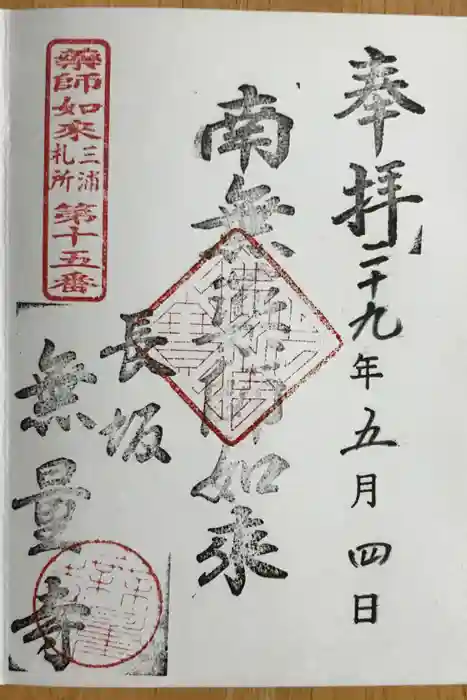 奉拝
二十九年五月四日
南無薬師如来
長坂
無量寺
藥師如來
三浦
札所
第十五番